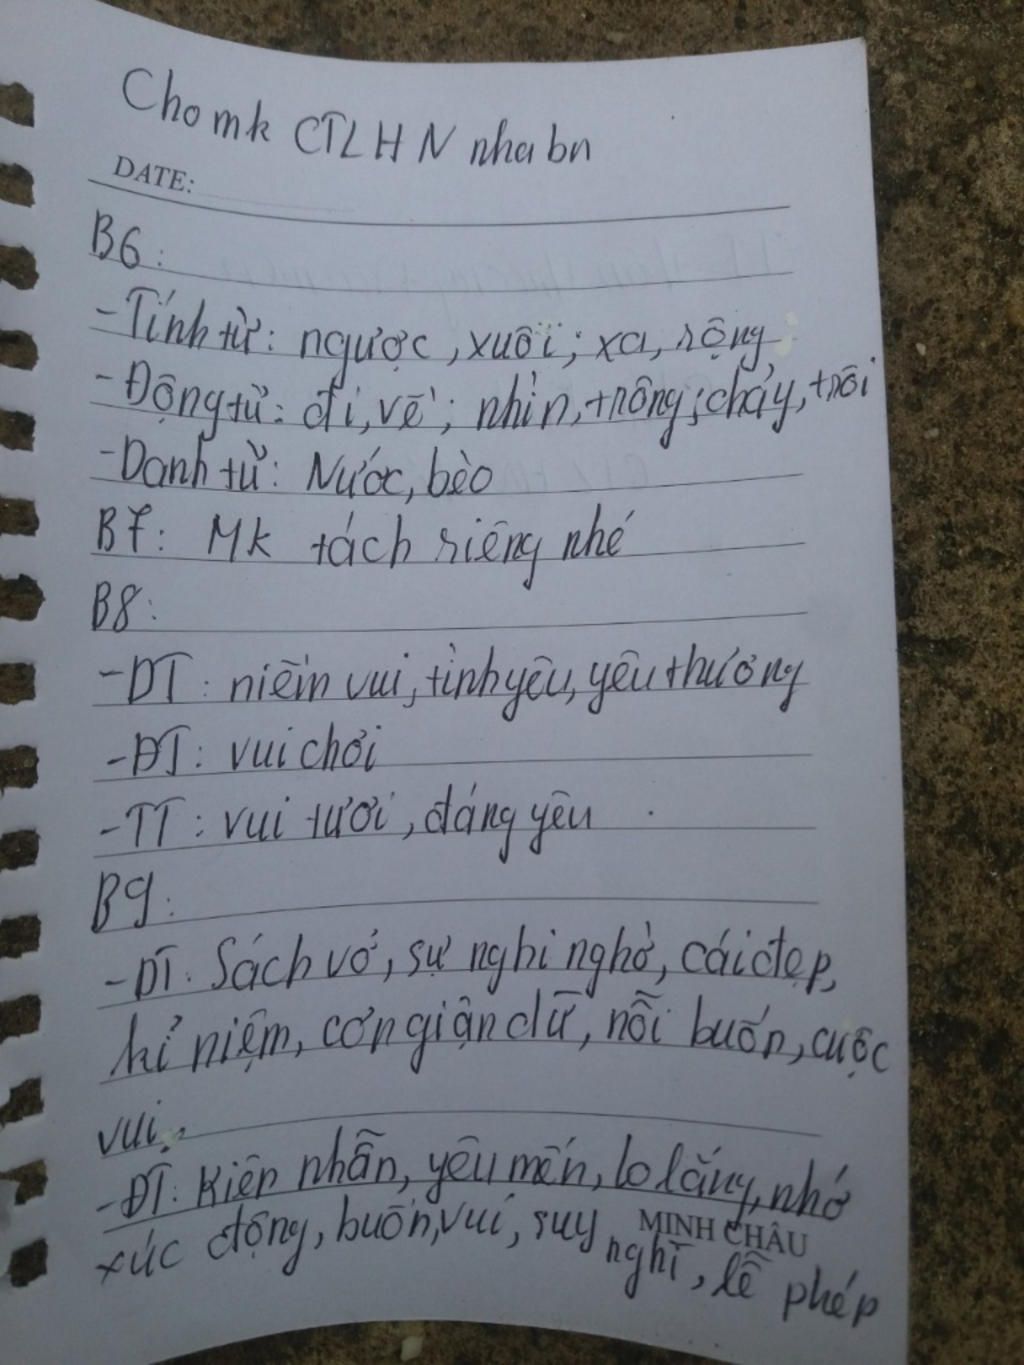 Cho mk CTLHN nha bn
DATE:
B6:
- Tính từ: ngược, xuôi; xa, rộng
- Động từ: đi, về; nhìn, trông; chảy, trôi
- Danh từ: Nước, bèo
B7: Mk tách riêng nhé
B8:
- DT: niềm vui, tình yêu, yêu thương
- ĐT: vui chơi
- TT: vui tươi, đáng yêu
B9:
- DT: Sách vở, sự nghi nghờ, cái đẹp,
kỉ niệm, cơn giận dữ, nỗi buồn, cuộc
vui.
- ĐT: Kiên nhẫn, yêu mến, lo lắng, nhớ
xúc động, buồn, vui, suy nghĩ, lễ phép
MINH CHÂU